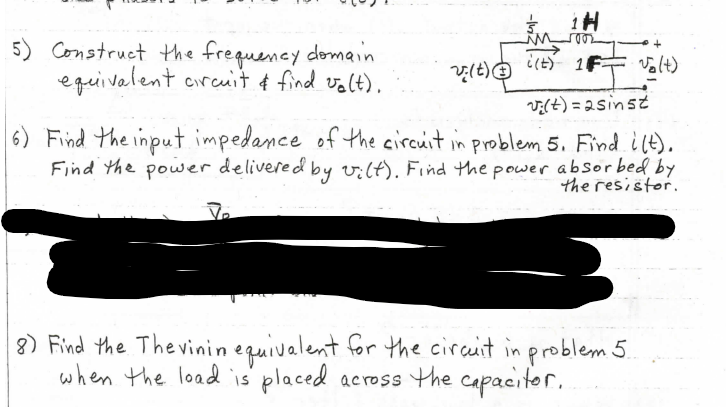 5) Construct the frequency domain
equivalent circuit & find vₒ(t).
1/5
1H
i(t)
1F
+
vₒ(t)
−
vᵢ(t)
vᵢ(t) = 2 sin 5t
6) Find the input impedance of the circuit in problem 5. Find i(t).
Find the power delivered by vᵢ(t). Find the power absorbed by
the resistor.
8) Find the Thevinin equivalent for the circuit in problem 5
when the load is placed across the capacitor.